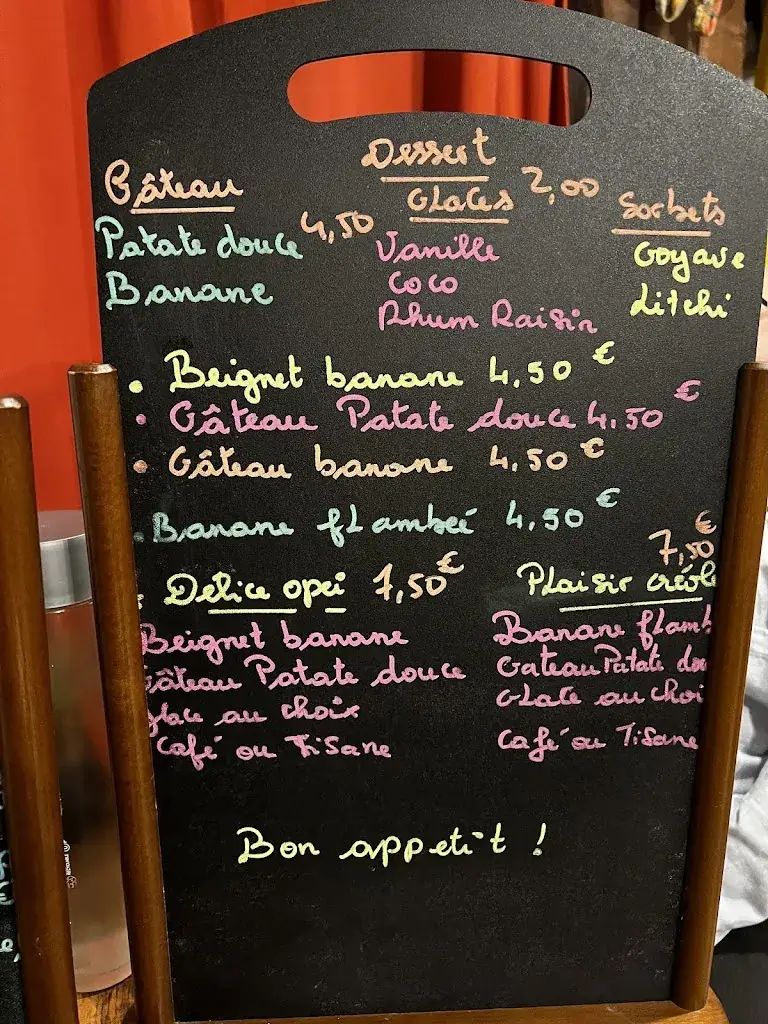 Dessert
Gâteau
Glaces 2,00
Sorbets
Patate douce 4,50
Banane
Vanille
Coco
Rhum Raisin
Goyave
Litchi
• Beignet banane 4,50 €
• Gâteau Patate douce 4,50 €
• Gâteau banane 4,50 €
• Banane flambeé 4,50 €
• Delice opei 7,50 €
Beignet banane
Gâteau Patate douce
glace au choix
Café ou Tisane
7,50 €
Plaisir créole
Banane flamb
Gateau Patate dou
Glace au choi
Café ou Tisane
Bon appetit !